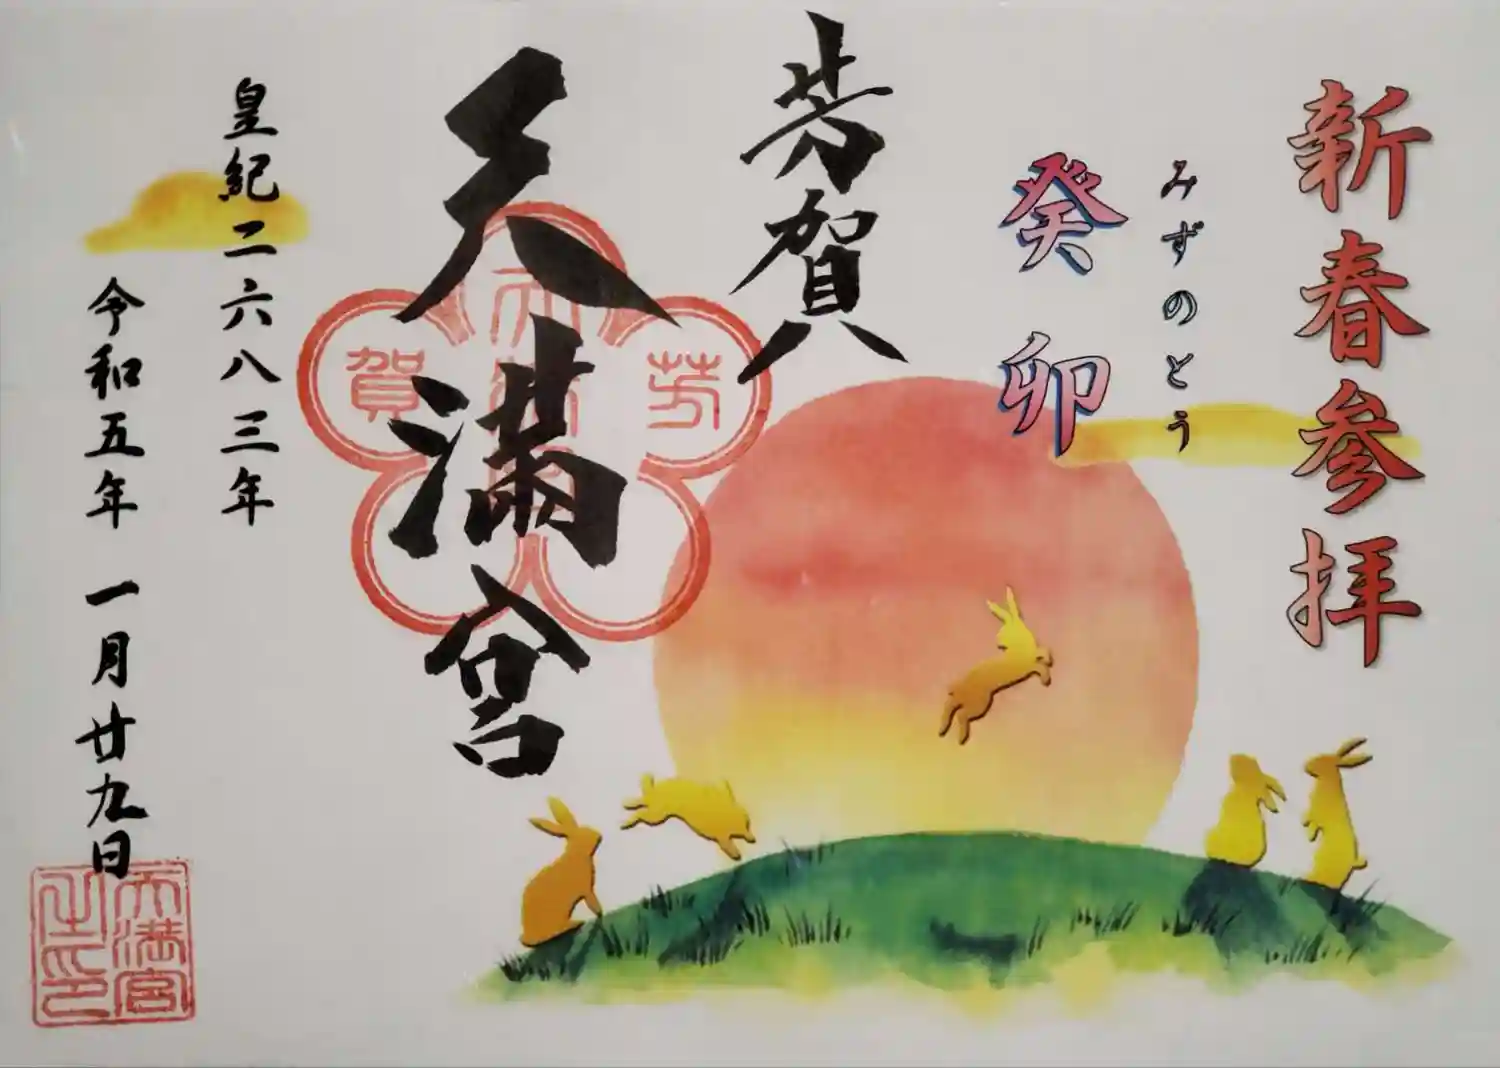 新春参拝
みずのとう
癸卯
芳賀
天満宮
皇紀二六八三年
令和五年 一月廿九日
芳
賀
天満宮
之印